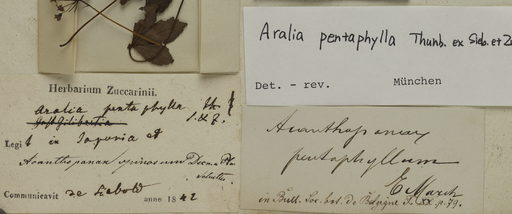 Aralia pentaphylla Thunb. ex Sieb. et Zu
Det. - rev. München
Herbarium Zuccarinii.
Aralia pentaphylla Th.
S & Z.
Legit in Japonia et
Acanthopanax spinosum Decne Pla
Communicavit de Siebold anno 1842
Acanthopanax
pentaphyllum
E. March
in Bull. Soc. bot. de Belgique T. XX p. 79.